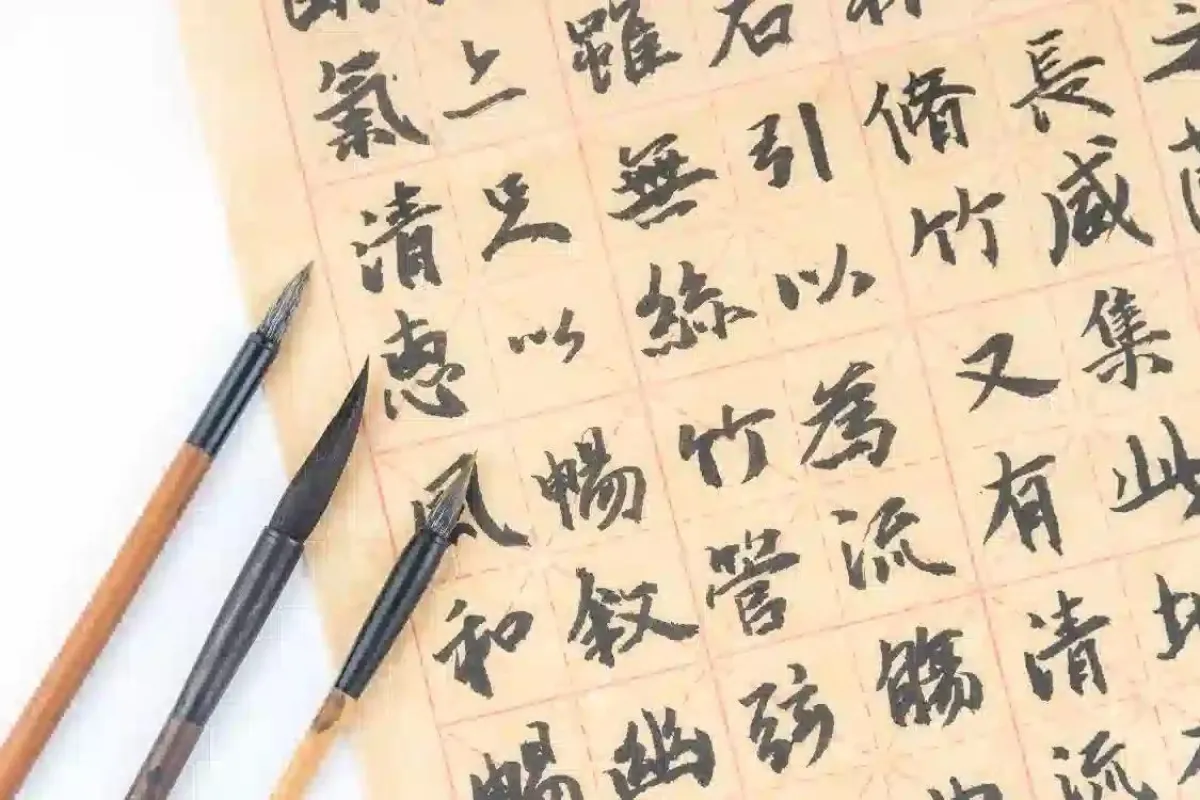 長咸集此
脩竹又有清流
右引以為流觴
雖無絲竹管弦
亦足以暢叙幽
氣清惠風和暢